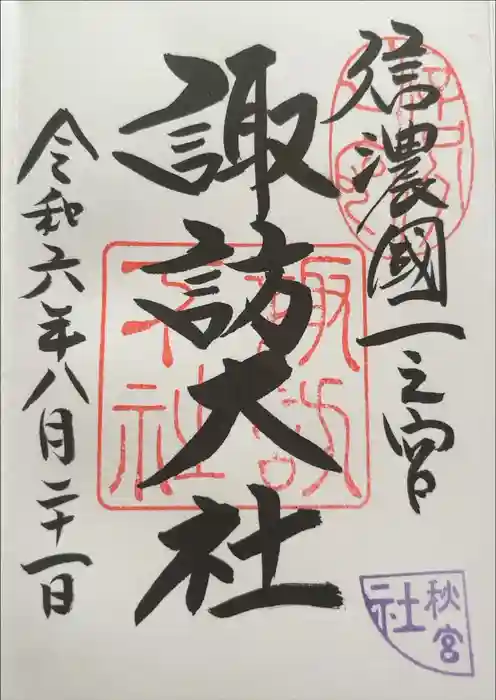 信濃國一之宮
諏訪大社
令和六年八月二十一日
諏訪
大社
秋宮
社